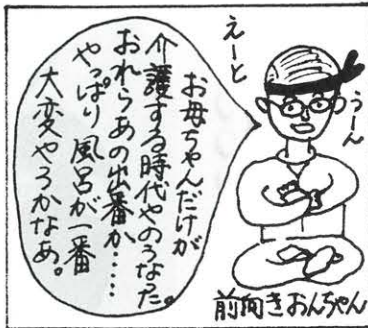 えーと
うーん
お母ちゃんだけが
介護する時代やのうなった。
おれらあの出番か……
やっぱり風呂が一番
大変やろかなあ。
前向きおんちゃん